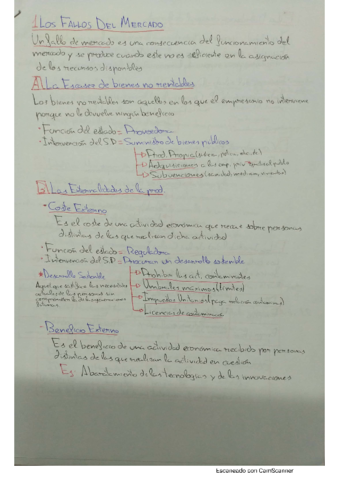 1. Los Fallos Del Mercado
Un fallo de mercado es una consecuencia del funcionamiento del
mercado y se produce cuando este no es eficiente en la asignación
de los recursos disponibles
A) La Escasez de bienes no rentables
Los bienes no rentables son aquellos en los que el empresario no interviene
porque no le devuelve ningún beneficio
· Función del estado = Proveedora
· Intervención del S.P = Suministro de bienes públicos
Prod. Propia
Adquisiciones
Subvenciones
B) Las Externalidades de la prod.
· Coste Externo
Es el coste de una actividad económica que recae sobre personas
distintas de las que realizan dicha actividad
· Función del estado = Reguladora
· Intervención del S.P = Procurar un desarrollo sostenible
* Desarrollo Sostenible
Prohibir las act. contaminantes
Umbrales máximos (límites)
Impuestos
Licencias de contaminar
· Beneficio Externo
Es el beneficio de una actividad económica recibido por personas
distintas de las que realizan la actividad en cuestión
Ej: Abaratamiento de las tecnologías y de las innovaciones
Escaneado con CamScanner